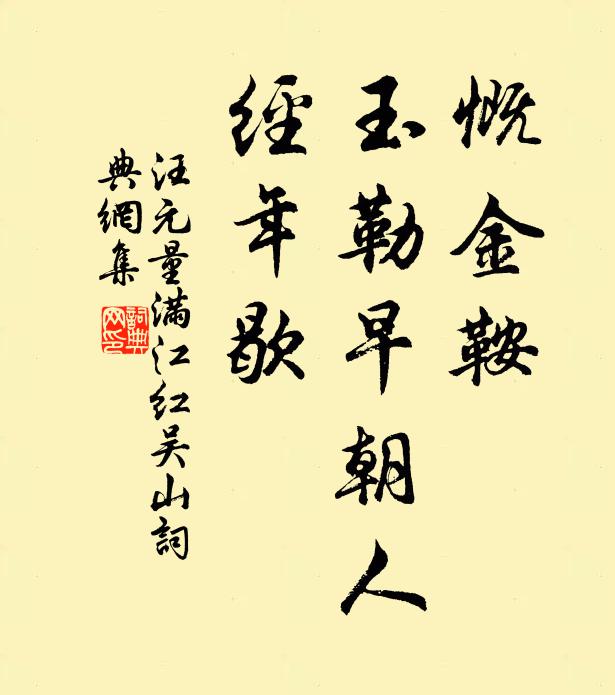 慨金鞍
玉勒早朝人
經年歇
汪元量滿江紅吴山詞
典網集
詞典
网印